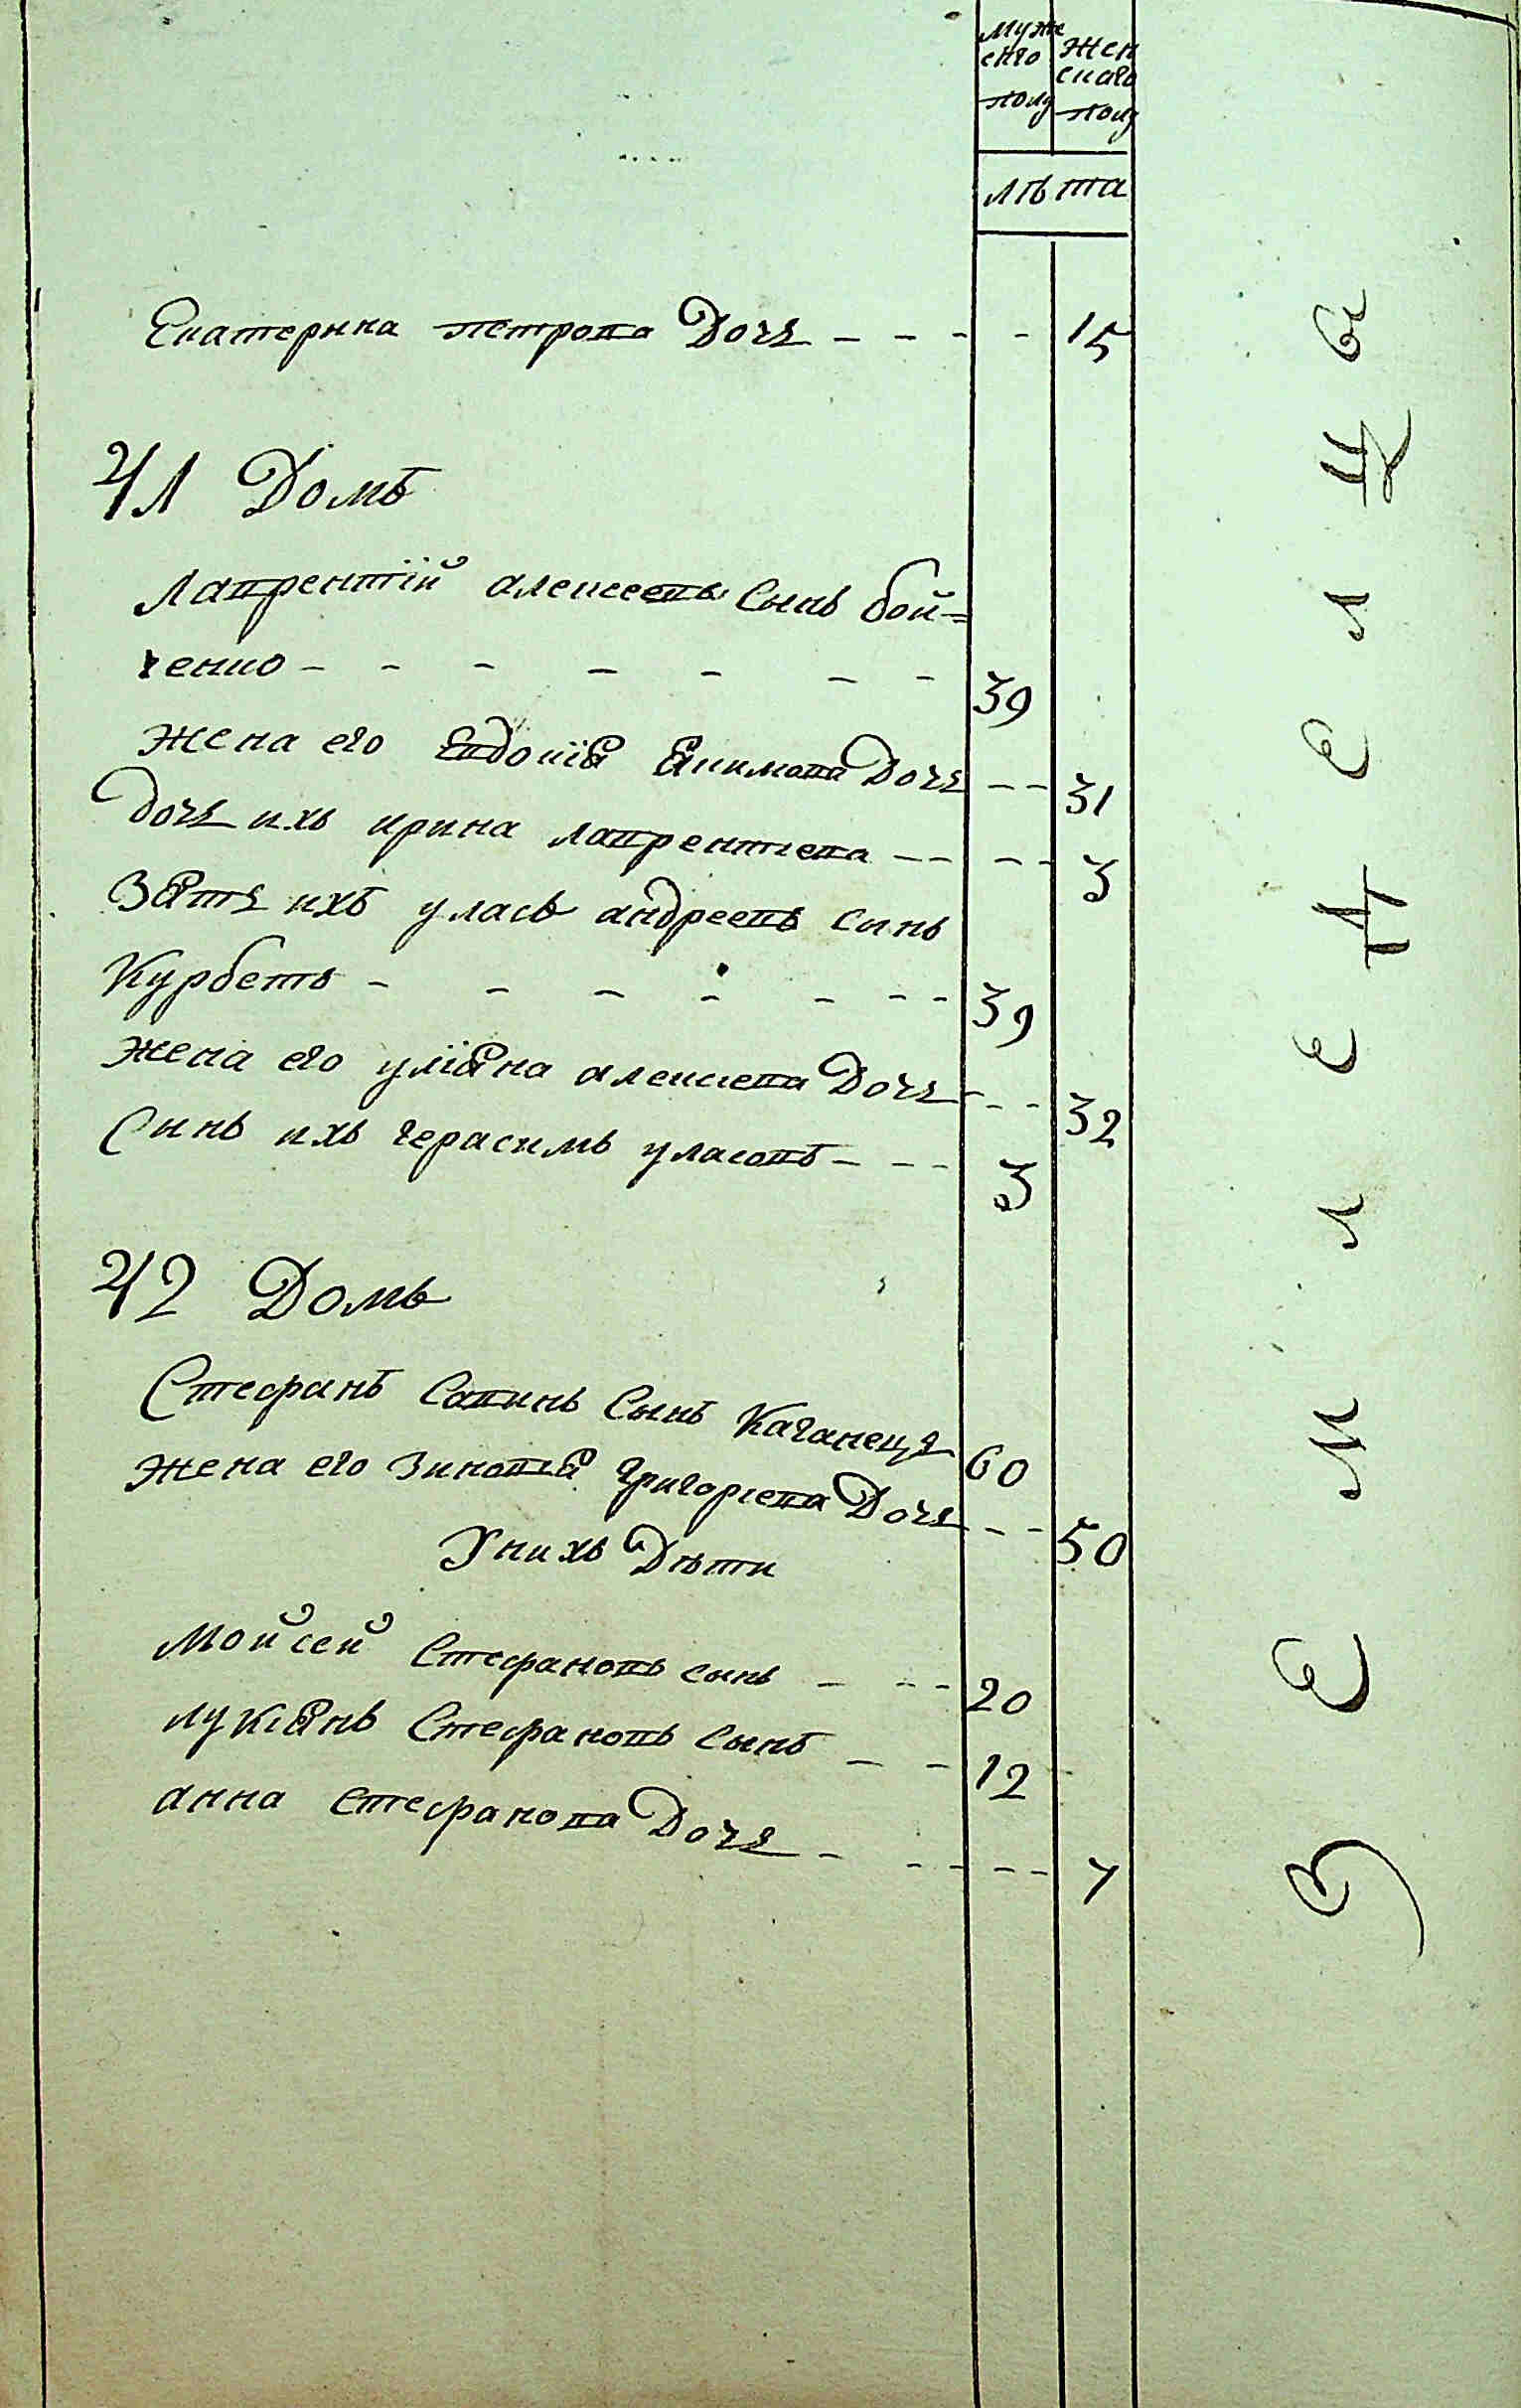 муже
ского
полу
жен
скаго
полу
лѣта
Екатерина петрова Дочь - - - - 15
41 Домъ
Лаврентїй алексеевъ Сынъ бой=
ченко - - - - - - - 39
жена его Евдокїя Якимова Дочь - - 31
дочь ихъ ирина лаврентиева - - - - 3
Зять ихъ уласъ андреевъ синъ
Курбетъ - - - - - - - 39
жена его улїяна алексиева Дочь - - - 32
Синъ ихъ герасимъ уласовъ - - - 3
42 Домъ
Стефанъ Савинъ Сынъ Каганець 60
жена его Зиновия григориева Дочь - - - 50
У нихъ Дѣти
Мойсей Стефановъ сынъ - - - 20
лукиянъ Стефановъ Сынъ - - 12
анна стефанова Дочь - - - - - 7